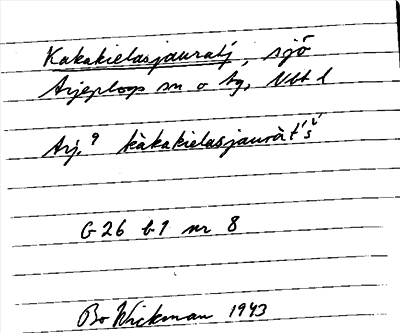 Kakakielasjauratj, sjö
Arjeplogs sn o tg, Vbt l
Arj. 9 kàkakielasjauràt'š'
G 26 b 1 nr 8
Bo Wickman 1943